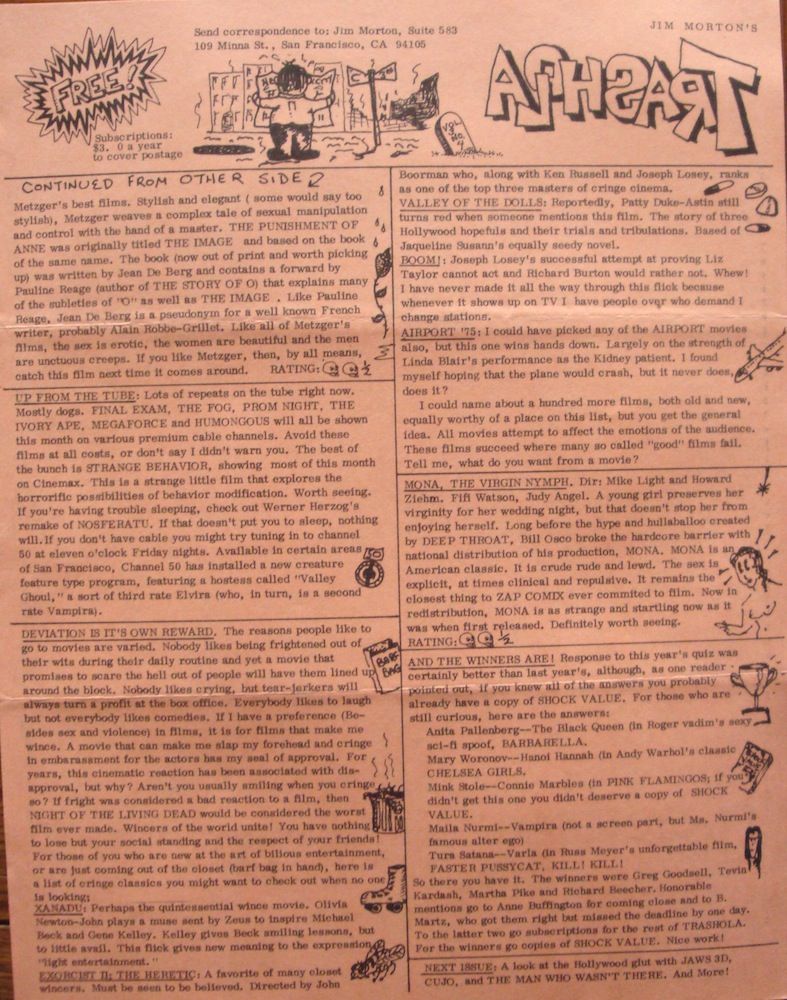 JIM MORTON'S
Send correspondence to: Jim Morton, Suite 583
109 Minna St., San Francisco, CA 94105
FREE!
TRASHOLA
Subscriptions:
$3. 0 a year
to cover postage
VOL. 2 NO. 4
CONTINUED FROM OTHER SIDE
Metzger's best films. Stylish and elegant ( some would say too
stylish), Metzger weaves a complex tale of sexual manipulation
and control with the hand of a master. THE PUNISHMENT OF
ANNE was originally titled THE IMAGE and based on the book
of the same name. The book (now out of print and worth picking
up) was written by Jean De Berg and contains a forward by
Pauline Reage (author of THE STORY OF O) that explains many
of the subleties of "O" as well as THE IMAGE . Like Pauline
Reage, Jean De Berg is a pseudonym for a well known French
writer, probably Alain Robbe-Grillet. Like all of Metzger's
films, the sex is erotic, the women are beautiful and the men
are unctuous creeps. If you like Metzger, then, by all means,
catch this film next time it comes around. RATING: ½
UP FROM THE TUBE: Lots of repeats on the tube right now.
Mostly dogs. FINAL EXAM, THE FOG, PROM NIGHT, THE
IVORY APE, MEGAFORCE and HUMONGOUS will all be shown
this month on various premium cable channels. Avoid these
films at all costs, or don't say I didn't warn you. The best of
the bunch is STRANGE BEHAVIOR, showing most of this month
on Cinemax. This is a strange little film that explores the
horrorific possibilities of behavior modification. Worth seeing.
If you're having trouble sleeping, check out Werner Herzog's
remake of NOSFERATU. If that doesn't put you to sleep, nothing
will. If you don't have cable you might try tuning in to channel
50 at eleven o'clock Friday nights. Available in certain areas
of San Francisco, Channel 50 has installed a new creature
feature type program, featuring a hostess called "Valley
Ghoul," a sort of third rate Elvira (who, in turn, is a second
rate Vampira).
50
DEVIATION IS IT'S OWN REWARD. The reasons people like to
go to movies are varied. Nobody likes being frightened out of
their wits during their daily routine and yet a movie that
promises to scare the hell out of people will have them lined up
around the block. Nobody likes crying, but tear-jerkers will
always turn a profit at the box office. Everybody likes to laugh
but not everybody likes comedies. If I have a preference (Be-
sides sex and violence) in films, it is for films that make me
wince. A movie that can make me slap my forehead and cringe
in embarassment for the actors has my seal of approval. For
years, this cinematic reaction has been associated with dis-
approval, but why? Aren't you usually smiling when you cringe
so? If fright was considered a bad reaction to a film, then
NIGHT OF THE LIVING DEAD would be considered the worst
film ever made. Wincers of the world unite! You have nothing
to lose but your social standing and the respect of your friends!
For those of you who are new at the art of bilious entertainment,
or are just coming out of the closet (barf bag in hand), here is
a list of cringe classics you might want to check out when no one
is looking;
BARF BAG
XANADU: Perhaps the quintessential wince movie. Olivia
Newton-John plays a muse sent by Zeus to inspire Michael
Beck and Gene Kelley. Kelley gives Beck smiling lessons, but
to little avail. This flick gives new meaning to the expression
"light entertainment."
EXORCIST II; THE HERETIC: A favorite of many closet
wincers. Must be seen to be believed. Directed by John
Boorman who, along with Ken Russell and Joseph Losey, ranks
as one of the top three masters of cringe cinema.
VALLEY OF THE DOLLS: Reportedly, Patty Duke-Astin still
turns red when someone mentions this film. The story of three
Hollywood hopefuls and their trials and tribulations. Based of
Jaqueline Susann's equally seedy novel.
BOOM!: Joseph Losey's successful attempt at proving Liz
Taylor cannot act and Richard Burton would rather not. Whew!
I have never made it all the way through this flick because
whenever it shows up on TV I have people over who demand I
change stations.
AIRPORT '75: I could have picked any of the AIRPORT movies
also, but this one wins hands down. Largely on the strength of
Linda Blair's performance as the Kidney patient. I found
myself hoping that the plane would crash, but it never does,
does it?
I could name about a hundred more films, both old and new,
equally worthy of a place on this list, but you get the general
idea. All movies attempt to affect the emotions of the audience.
These films succeed where many so called "good" films fail.
Tell me, what do you want from a movie?
MONA, THE VIRGIN NYMPH. Dir: Mike Light and Howard
Ziehm. Fifi Watson, Judy Angel. A young girl preserves her
virginity for her wedding night, but that doesn't stop her from
enjoying herself. Long before the hype and hullaballoo created
by DEEP THROAT, Bill Osco broke the hardcore barrier with
national distribution of his production, MONA. MONA is an
American classic. It is crude rude and lewd. The sex is
explicit, at times clinical and repulsive. It remains the
closest thing to ZAP COMIX ever commited to film. Now in
redistribution, MONA is as strange and startling now as it
was when first released. Definitely worth seeing.
RATING: ½
AND THE WINNERS ARE! Response to this year's quiz was
certainly better than last year's, although, as one reader
pointed out, if you knew all of the answers you probably
already have a copy of SHOCK VALUE. For those who are
still curious, here are the answers:
Anita Pallenberg--The Black Queen (in Roger vadim's sexy
sci-fi spoof, BARBARELLA.
Mary Woronov--Hanoi Hannah (in Andy Warhol's classic
CHELSEA GIRLS.
Mink Stole--Connie Marbles (in PINK FLAMINGOS; if you
didn't get this one you didn't deserve a copy of SHOCK
VALUE.
Maila Nurmi--Vampira (not a screen part, but Ms. Nurmi's
famous alter ego)
Tura Satana--Varla (in Russ Meyer's unforgettable film,
FASTER PUSSYCAT, KILL! KILL!
So there you have it. The winners were Greg Goodsell, Tevin
Kardash, Martha Pike and Richard Beecher. Honorable
mentions go to Anne Buffington for coming close and to B.
Martz, who got them right but missed the deadline by one day.
To the latter two go subscriptions for the rest of TRASHOLA.
For the winners go copies of SHOCK VALUE. Nice work!
NEXT ISSUE: A look at the Hollywood glut with JAWS 3D,
CUJO, and THE MAN WHO WASN'T THERE. And More!